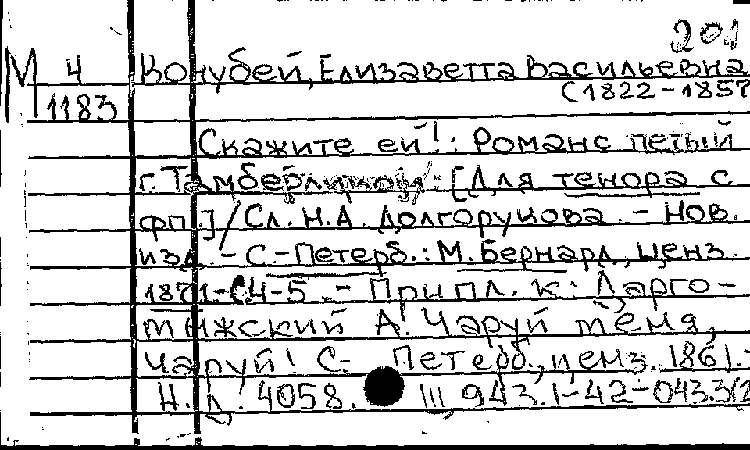 201
М 4 Кочубей, Елизавета Васильевна
1183 (1822-1857
Скажите ей!: Романс петый
г. Тамберликом: [Для тенора с
фп.]/Сл. Н.А. Долгорукова. - Нов.
изд. - С.-Петерб.: М. Бернард, ценз.
1871. - С4-5. - Припл. к: Дарго-
мыжский А. Чаруй меня,
чаруй! С.- Петерб., ценз. 1861.-
Н.д. 4058. III 943.1-42-043.3(2